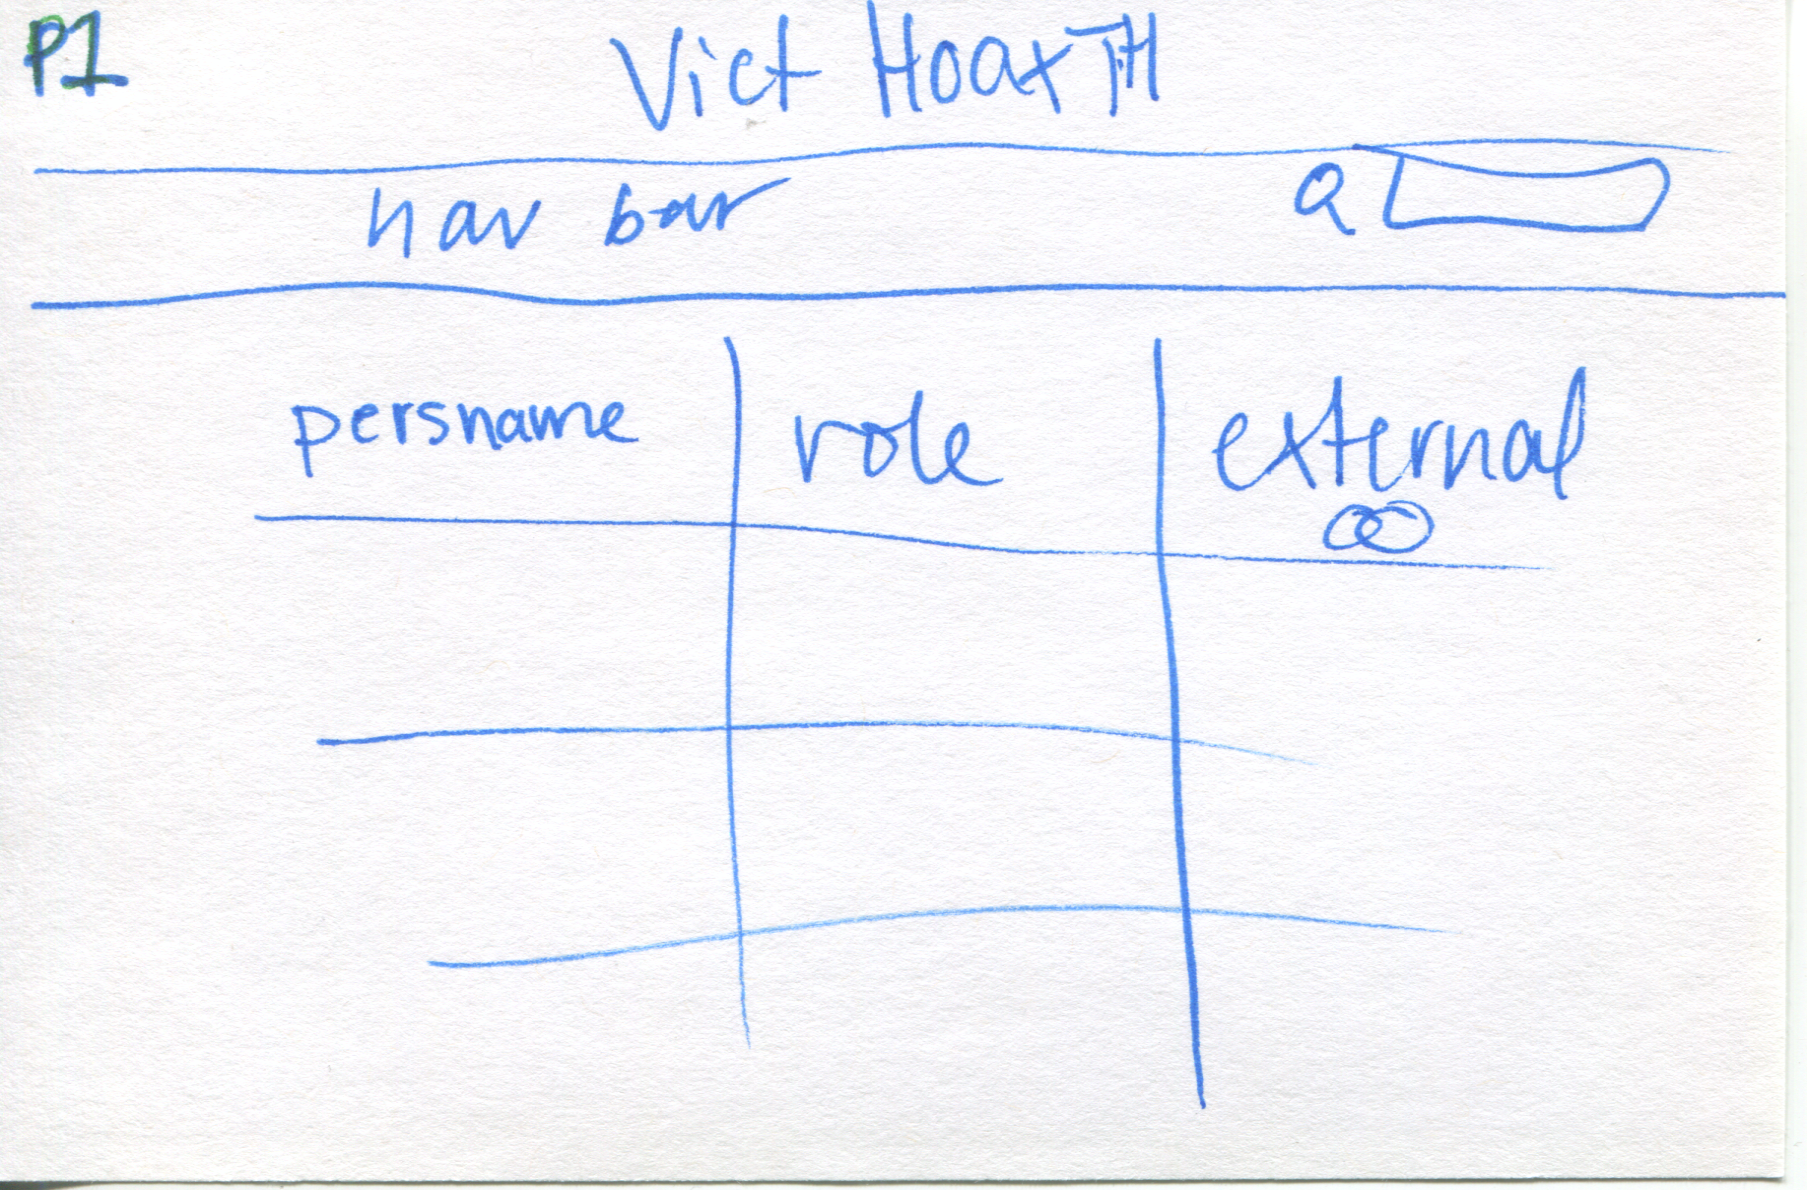 P1
Vict Hoax TH
nav bar
persname
role
external